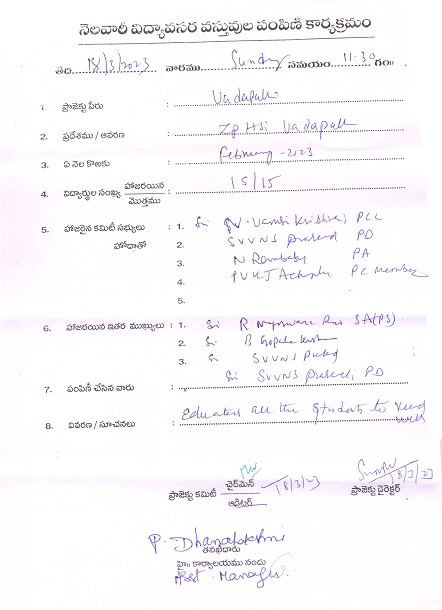 నెలవారీ విద్యావసర వస్తువుల పంపిణి కార్యక్రమం
తేది 18/3/2023 వారము Sunday సమయం 11-30 గం॥
1. ప్రాజెక్టు పేరు Vadapalli
2. ప్రదేశము / ఆవరణ ZPHS Vadapalli
3. ఏ నెల కొఱకు February -2023
4. విద్యార్థుల సంఖ్య హాజరయిన 15/15
మొత్తము
5. హాజరైన కమిటీ సభ్యులు 1. Sri V. Vamsi Krishna, PCC
హోదాతో 2. SVVNS Prasad PD
3. N Rambabu PA
4. PVKJ PC Member
5.
6. హాజరయిన ఇతర ముఖ్యులు 1. Sri R Rao SA(PS)
2. Sri B Gopala
3. Sri SVVNS Prasad
7. పంపిణీ చేసిన వారు Sri SVVNS Prasad, PD
8. వివరణ / సూచనలు Educates all the students to read well
ప్రాజెక్టు కమిటీ ఛైర్‌మెన్ 18/3/23 ప్రాజెక్టు డైరెక్టర్ 18/3/23
ఆడిటర్
P. Dhanalakshmi
తనిఖీదారు
హై॥ కార్యాలయము నందు
Asst. Manager.